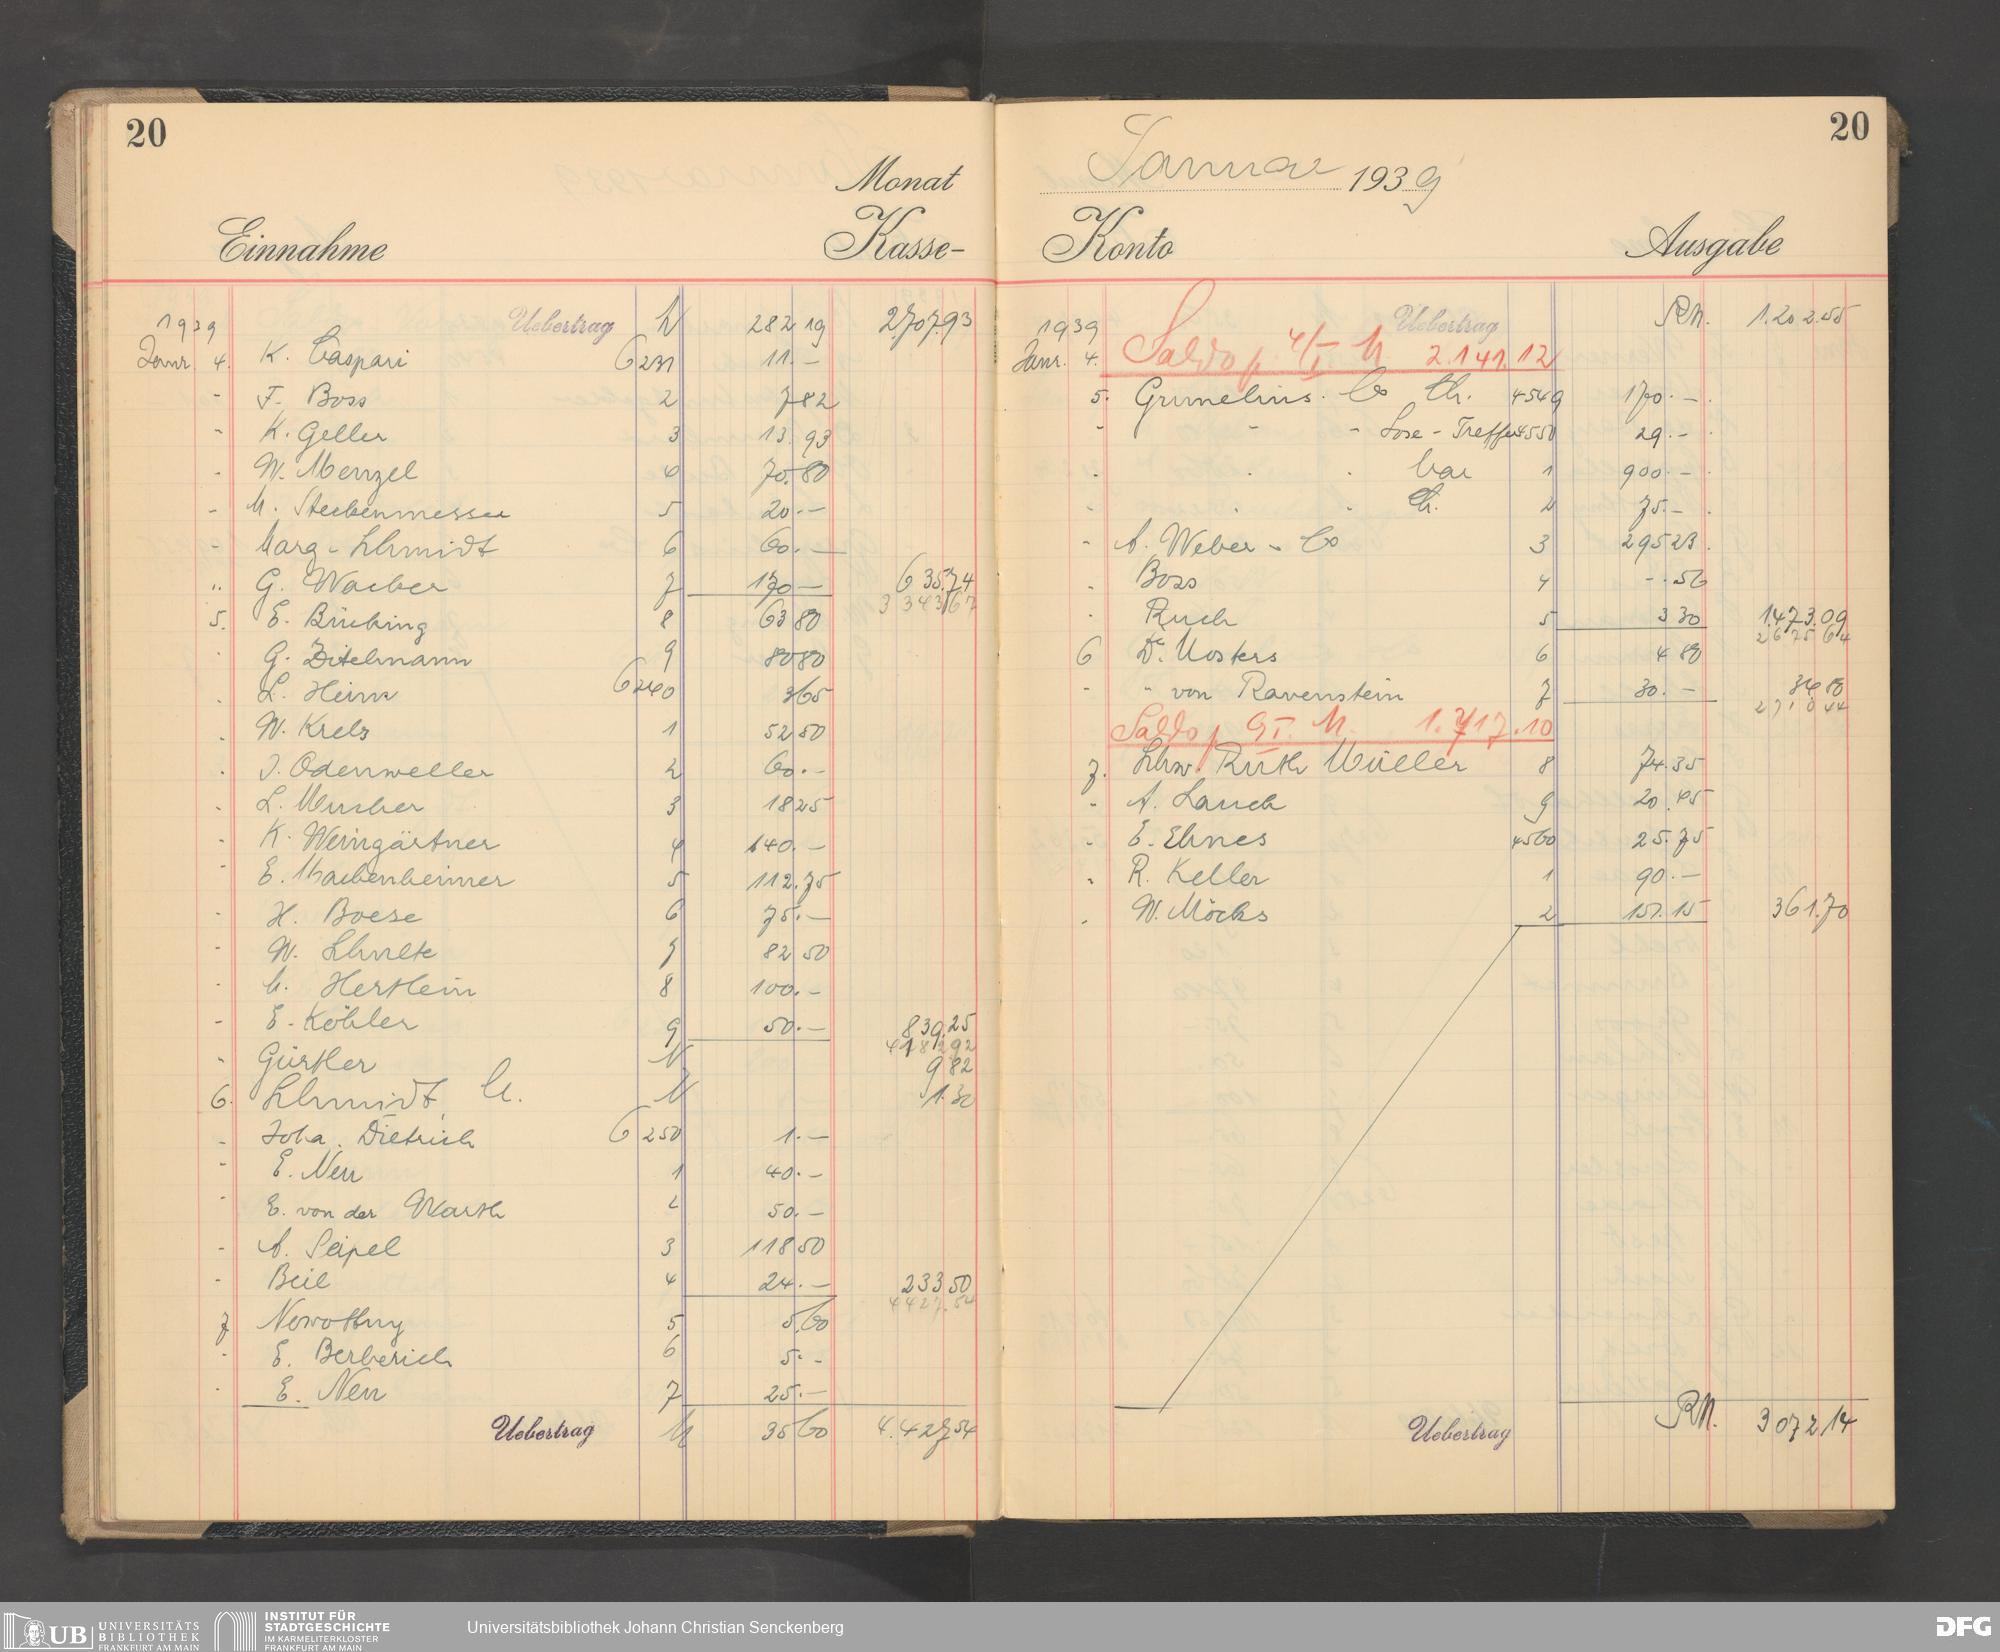 20
Monat
Einnahme Kasse-
1939 Uebertrag M 282 19 2707.93
Janr. 4. K. Caspari 6231 11.—
" F. Boss 2 7 82
" K. Geller 3 13.93
" W. Menzel 4 70.80
" 5 20.—
" Marg. Schmidt 6 60.—
" G. Wacker 7 170.— 635.74
3343 67
5. E. Brücking 8 63 80
" G. Zitelmann 9 80 80
" L. Heim 6240 3 65
" W. Krebs 1 52 50
" J. Odenweller 2 60.—
" L. 3 18 25
" K. Weingärtner 4 140.—
" E. 5 112.75
" H. Boese 6 75.—
" W. Schulte 7 82 50
" M. Hertlein 8 100.—
" E. Köhler 9 50.— 839.25
4182 92
" Gürtler M 9 82
6. Schmidt, M 1.30
" Joha. Dietrich 6250 1.—
" E. Neu 1 40.—
" E. von der Warth 2 50.—
" A. Seipel 3 118 50
" Beil 4 24.— 233 50
4427.54
7 Nowottny 5 5.60
" E. Berberich 6 5.-
" E. Neu 7 25.—
Uebertrag M 35 60 4.427 54
20
Januar 1939
Konto Ausgabe
1939 Uebertrag RM. 1.202.55
Janr. 4. Saldo p. 4/I M 2.141.12
5. Grunelius. Co Ch. 4549 170.—
" " " Lose-Treffer 4550 29.—
" " " bar 1 900.—
" " " Ch. 2 75.—
" A. Weber & Co 3 295 23
" Boss 4 -.56
" Ruch 5 3 30 1473.09
2675 64
6 Dr. 6 4 80
" " von Ravenstein 7 30.— 34 80
2710 44
Saldo p. 6 I. M. 1.717.10
7. Schw. Ruth Müller 8 74.35
" A. Lauck 9 20.45
" E. Ehnes 4560 25.75
" R. Keller 1 90.—
" W. Möcks 2 151.15 361.70
Uebertrag RM. 3072 14
UB UNIVERSITÄTS
BIBLIOTHEK
FRANKFURT AM MAIN
INSTITUT FÜR
STADTGESCHICHTE
IM KARMELITERKLOSTER
FRANKFURT AM MAIN
Universitätsbibliothek Johann Christian Senckenberg
DFG